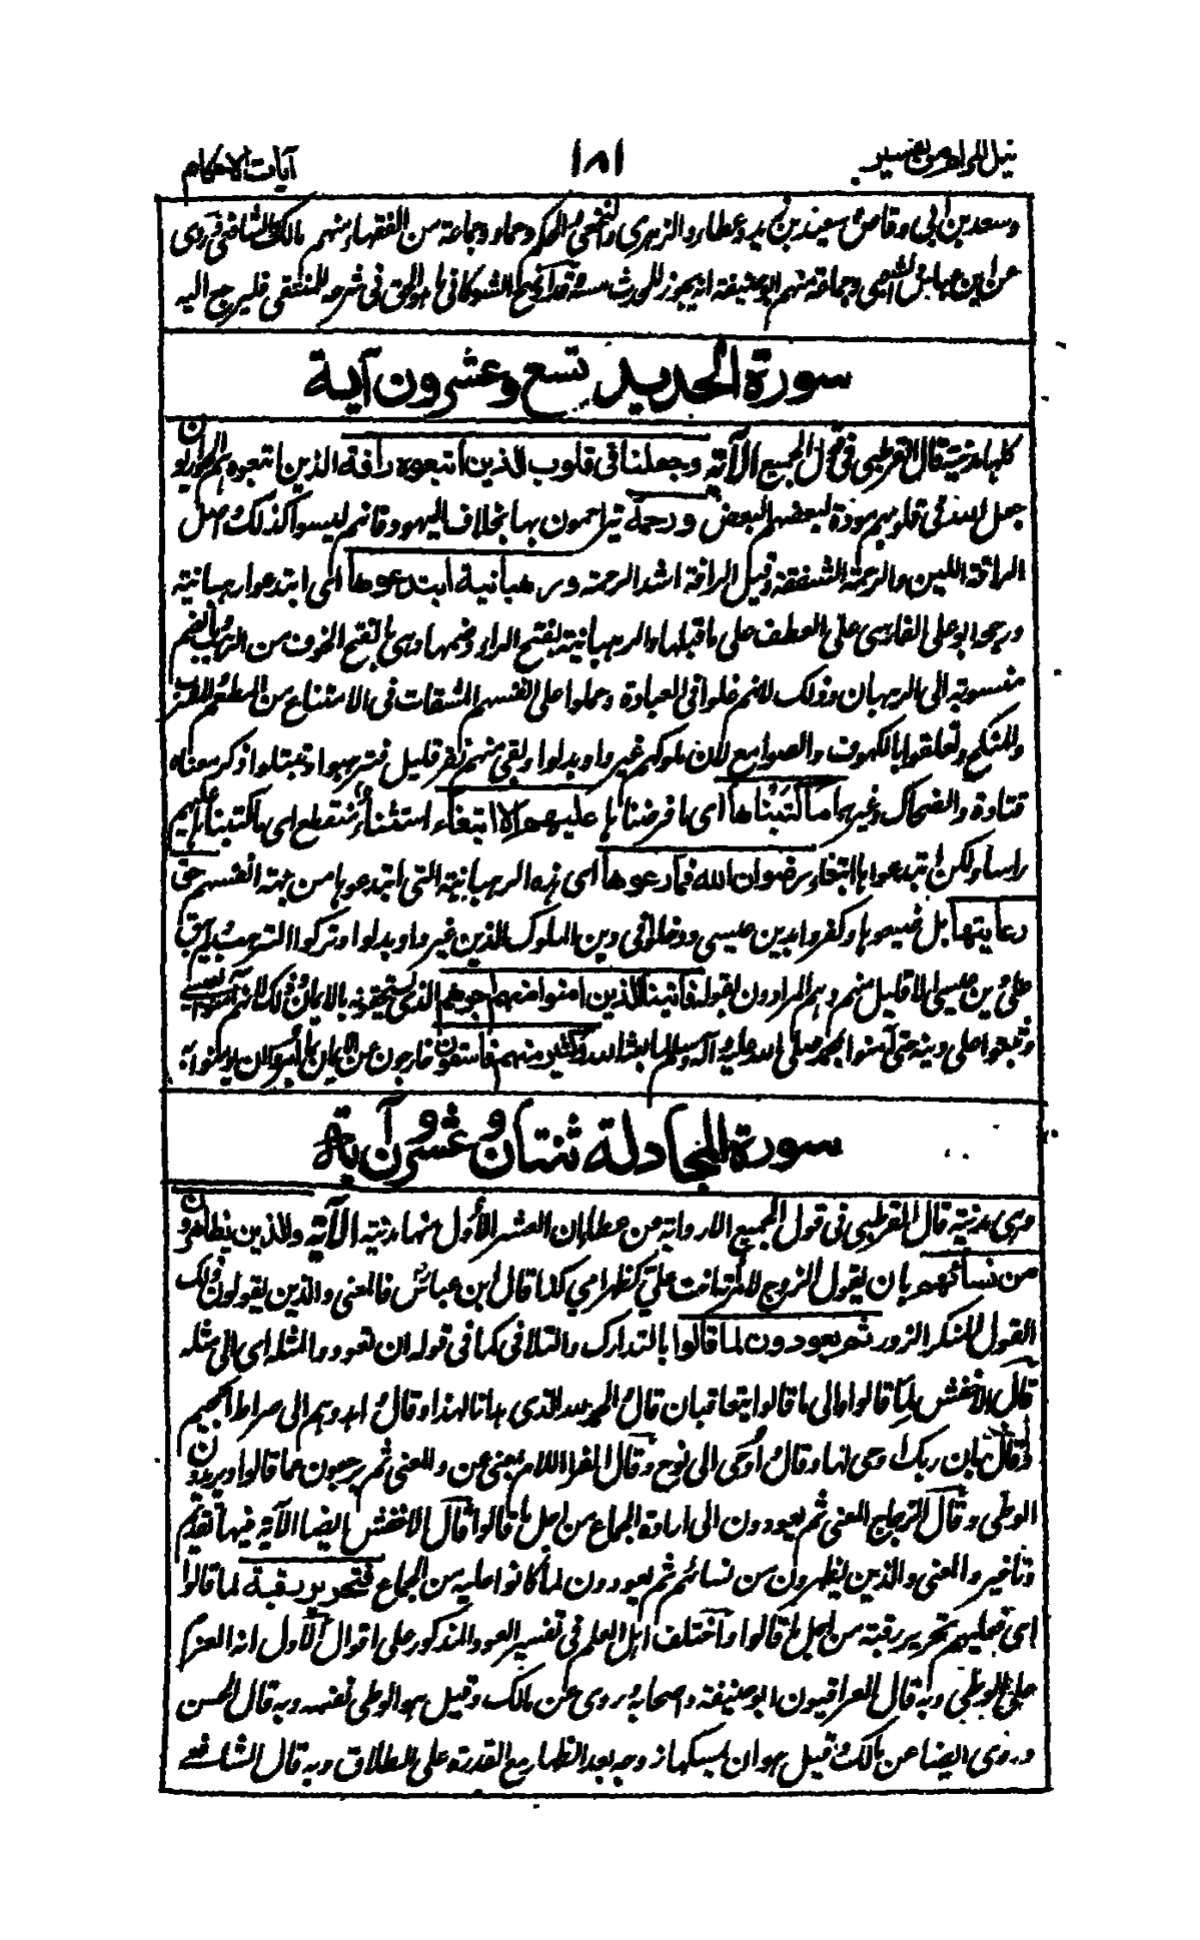 نيل المرام من تفسير
١٨١
آيات الاحكام
وسعد بن أبي وقاص وسعيد بن زيد وعطاء والزهري والنخعي والحكم وحماد وجماعة من الفقهاء منهم مالك والشافعي وروى
عن ابن عباس والشعبي وجماعة منهم ابو حنيفة انه يجوز للمحدث مسه وقد اوضح الشوكاني ما هو الحق في شرحه للمنتقى فليرجع اليه
سورة الحديد تسع وعشرون آية
كلها مدنية قال القرطبي في قول الجميع الآية وجعلنا في قلوب الذين اتبعوه رأفة الذين اتبعوه هم الحواريون
جعل الله في قلوبهم مودة لبعضهم البعض ورحمة يتراحمون بها بخلاف اليهود فانهم ليسوا كذلك واصل
الرافة اللين والرحمة الشفقة وقيل الرافة اشد الرحمة ورهبانية ابتدعوها اى ابتدعوا رهبانية
ورجحه ابو على الفارسى على العطف على ما قبلها والرهبانية بفتح الراء وضمها وهى بالفتح الخوف من الرهب وبالضم
منسوبة الى الرهبان وذلك لانهم غلوا في العبادة وحملوا على انفسهم المشقات في الامتناع من المطعم والمشرب
والمنكح وتعلقوا بالكهوف والصوامع لان ملوكهم غيروا وبدلوا وبقى منهم نفر قليل فترهبوا وتبتلوا ذكر معناه
قتادة والضحاك وغيرهما ما كتبناها اى ما فرضناها عليهم إلا ابتغاء استثناء منقطع اى ما كتبناها عليهم
راسا ولكن ابتدعوها ابتغاء رضوان الله فما رعوها اى هذه الرهبانية التى ابتدعوها من جهة انفسهم حق
رعايتها بل ضيعوها وكفروا بدين عيسى ودخلوا في دين الملوك الذين غيروا وبدلوا وتركوا الترهب ولم يبق
على دين عيسى الا قليل منهم وهم المرادون بقوله فآتينا الذين امنوا منهم اجرهم الذى يستحقونه بالايمان وذلك لانهم آمنوا بعيسى
وثبتوا على دينه حتى آمنوا بمحمد صلى الله عليه وآله وسلم لما بعثه الله وكثير منهم فاسقون خارجون عن الايمان بما امروا ان يؤمنوا به
سورة المجادلة ثنتان وعشرون آية
وهى مدنية قال القرطبي في قول الجميع الا رواية عن عطاء ان العشر الأول منها مدنية الآية والذين يظاهرون
من نسائهم بان يقول الزوج لامرأته انت علي كظهر امي كذا قال ابن عباس فالمعنى والذين يقولون ذلك
القول المنكر الزور ثم يعودون لما قالوا بالتدارك والتلافي كما في قوله ان تعودوا لمثله اى الى مثله
قال الاخفش لما قالوا والى ما قالوا يتعاقبان قال الحمد لله الذى هدانا لهذا وقال اهدوهم الى صراط الجحيم
وقال بان ربك اوحى لها وقال أوحى الى نوح وقال الفراء اللام بمعنى عن والمعنى ثم يرجعون عما قالوا ويريدون
الوطى وقال الزجاج المعنى ثم يعودون الى ارادة الجماع من اجل ما قالوا قال الاخفش ايضا الآية فيها تقديم
وتأخير والمعنى والذين يظهرون من نسائهم ثم يعودون لما كانوا عليه من الجماع فتحرير رقبة لما قالوا
اى فعليهم تحرير رقبة من اجل ما قالوا واختلف اهل العلم في تفسير العود المذكور على اقوال الأول انه العزم
على الوطى وبه قال العراقيون ابو حنيفة واصحابه وروى عن مالك وقيل هو الوطى نفسه وبه قال الحسن
وروى ايضا عن مالك وقيل هو ان يمسكها زوجه بعد الظهار مع القدرة على الطلاق وبه قال الشافعى